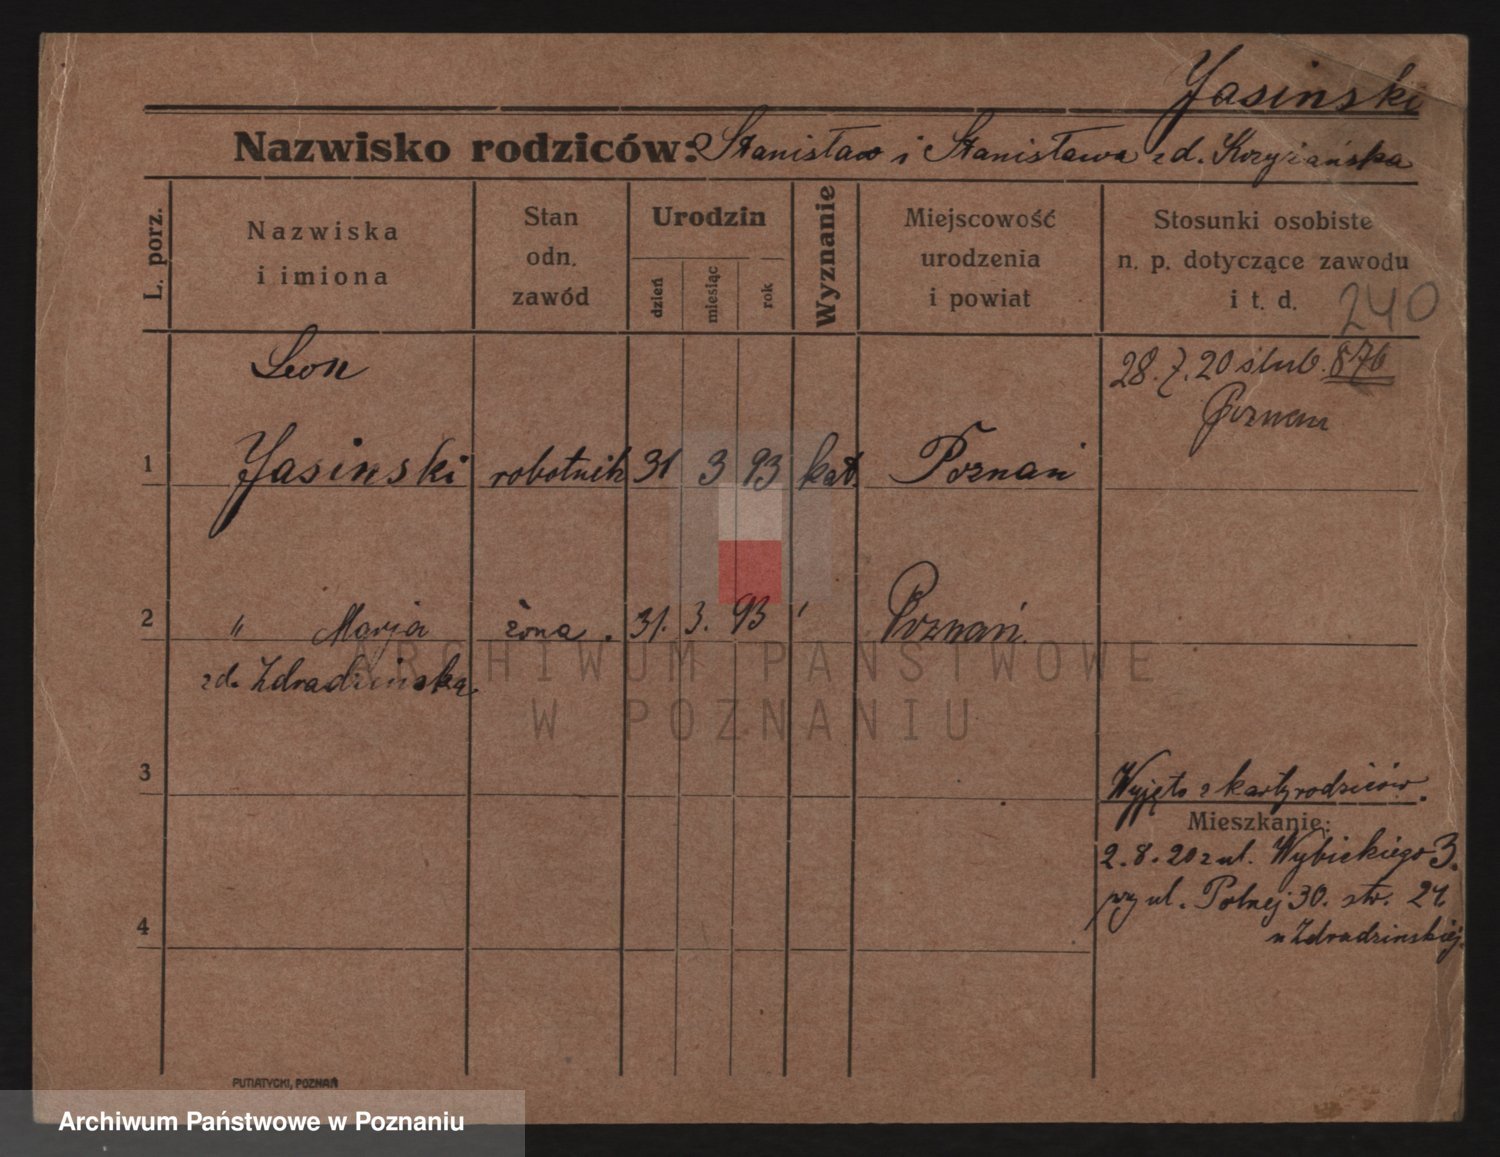 Jasinski
Nazwisko rodziców: Stanisław i Stanisława zd. Krzyżańska
L. porz.
Nazwiska
i imiona
Stan
odn.
zawód
Urodzin
dzień
miesiąc
rok
Wyznanie
Miejscowość
urodzenia
i powiat
Stosunki osobiste
n. p. dotyczące zawodu
i t. d.
240
Leon
28. 7. 20 ślub. 876
Poznań
1 Jasinski robotnik 31 3 93 kat. Poznań
2 " Marja żona. 31. 3. 93 ' Poznań.
zd. Zdradzinska
ARCHIWUM PAŃSTWOWE
W POZNANIU
3
Wyjęto z karty rodziców.
Mieszkanie:
2. 8. 20 z ul. Wybickiego 3.
przy ul. Polnej 30. str. 21
u Zdradzinskiej.
4
PUTIATYCKI, POZNAŃ
Archiwum Państwowe w Poznaniu